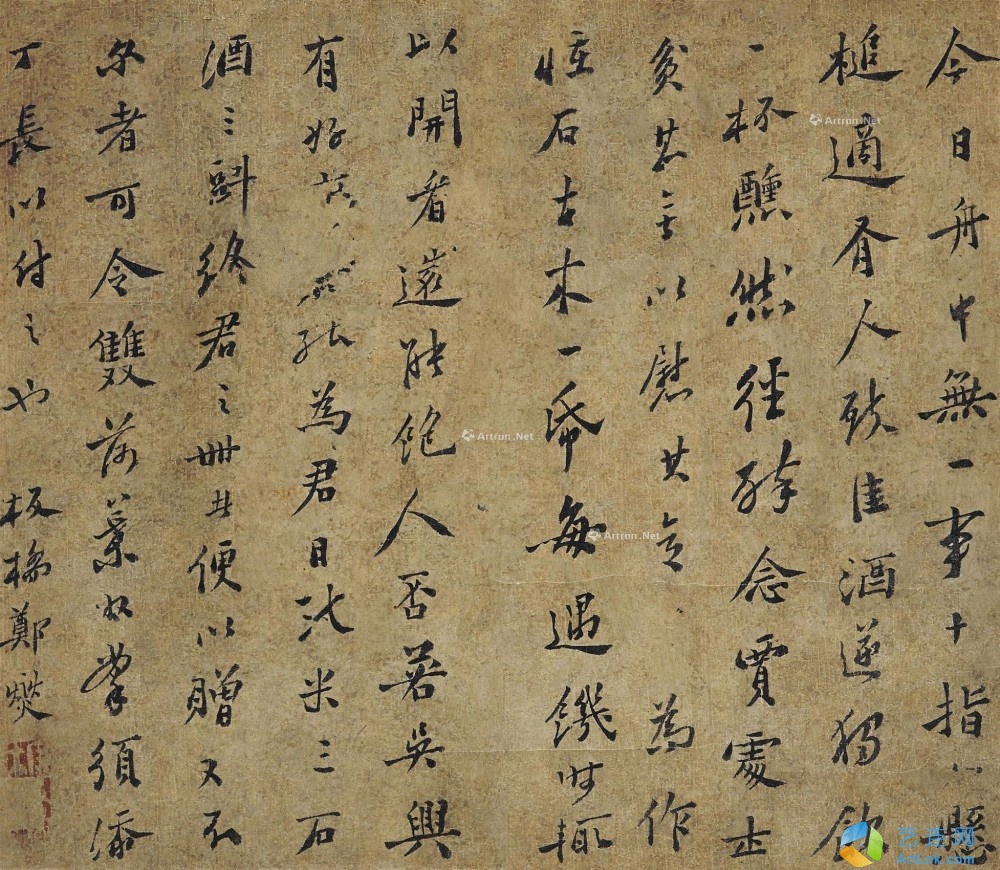 今日舟中無一事十指懸
槌適有人致佳酒遂獨飲
一杯醺然徑醉念賈處士
貧甚無以慰其意為作
怪石古木一帋每遇饑時輒
以開看還能飽人否若吳興
有好為君日米三石
酒三斛終君之世便以贈又不
尔者可令雙荷葉收掌須添
丁長以付之也 板橋鄭燮
Artron.Net
Artron.Net
Artron.Net